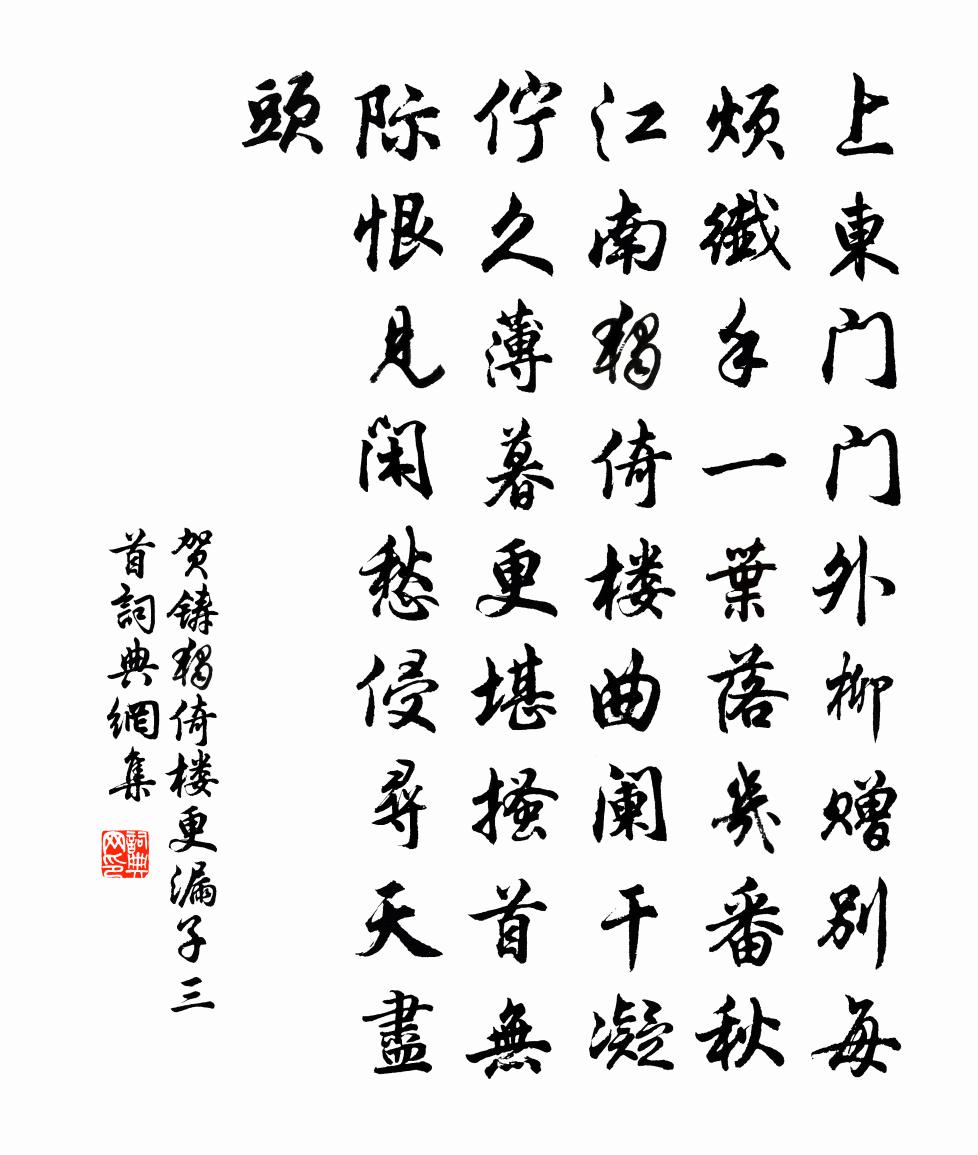 上東门门外柳赠别每
烦纖手一葉落幾番秋
江南獨倚楼曲阑干凝
佇久薄暮更堪搔首無
际恨见闲愁侵尋天盡
頭
贺鑄獨倚楼更漏子三
首詞典網集
詞典
网印